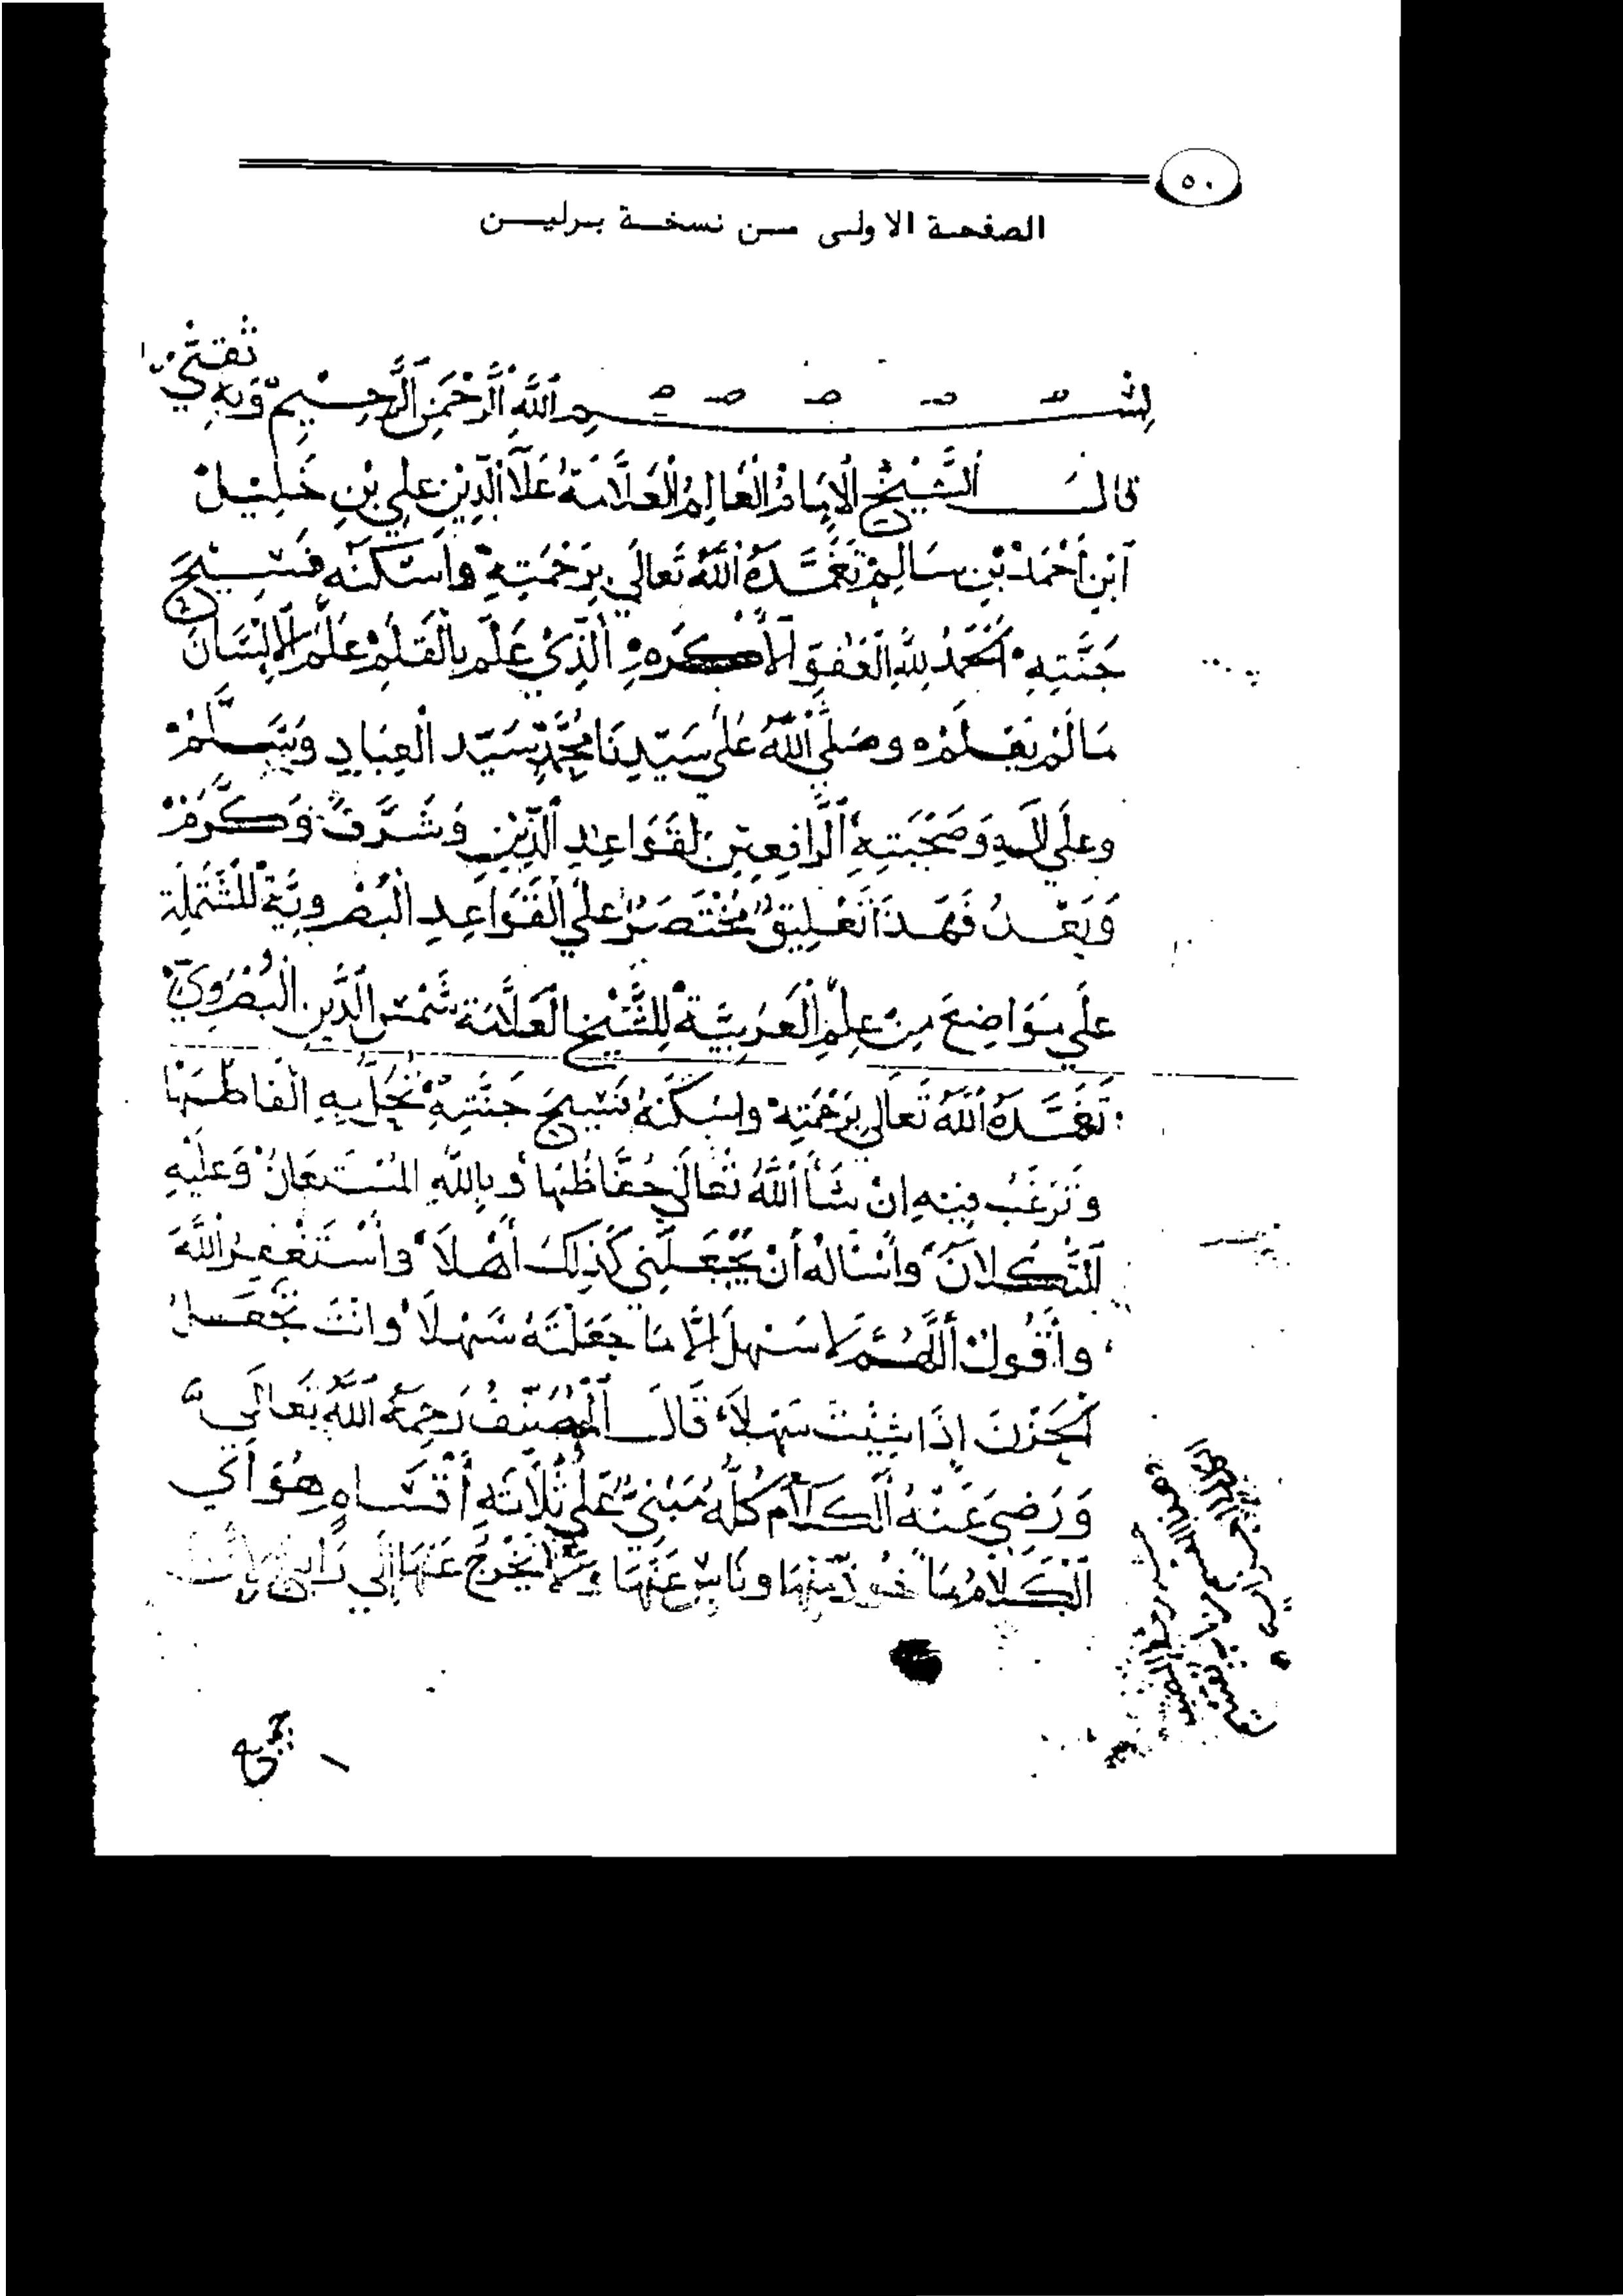 ٥٠
الصفحة الاولى من نسخة برلين
بِسْمِ اللَّهِ الرَّحْمَنِ الرَّحِيمِ وَبِهِ ثِقَتِي
قال الشَّيْخُ الإِمَامُ الْعَالِمُ الْعَلَّامَةُ عَلَاُ الدِّينِ عَلِي بْنِ خَلِيْلْ
ابْنِ أَحْمَدْ بْنِ سَالِمْ تَغَمَّدَهُ اللَّهُ تَعَالَى بِرَحْمَتِهِ وَاَسْكَنَه فَسِيْحَ
جَنَّتِهِ اَلْحَمْدُ لِلَّهِ الْعَفُوِّ الأَكْرَمِ الَّذِي عَلَّمَ بِالْقَلَمْ عَلَّمَ الإِنْسَانَ
مَا لَمْ يَعْلَمْ وَصَلَّى اللَّهُ عَلَى سَيِّدِنَا مُحَمَّدٍ سَيِّد الْعِبَادِ وَسَلَّمْ
وعلى آلِهِ وَصَحْبَتِهِ الرَّافِعِينَ لقَوَاعِدِ الدِّيْنِ وَشَرَّفَ وَكَرَّمْ
وَبَعْدُ فَهَذَا تَعْلِيْقٌ مُخْتَصَرٌ عَلَى الْقَوَاعِدِ الْبُصْرَوِيَّةْ الْمُشْتَمِلَة
عَلَى مَوَاضِعَ مِنْ عِلْمِ الْعَرَبِيَّةْ لِلشَّيْخِ الْعَلَّامَة شَمْسْ الدِّيْنِ الْبُصْرَوِيّ
تَغَمَّدَهُ اللَّهُ تَعَالَى بِرَحْمَتِهِ واسْكَنَهُ فَسِيحَ جَنَّتِهِ نُحَلُّ بِهِ الْفَاظُهَا
وَتَرْغَبُ فِيْهِ اِنْ شَاَ اللَّهُ تَعَالَى حُفَّاظُهَا وَبِاللَّهِ الْمُسْتَعَانُ وَعَلَيْهِ
التُّكْلَانَ وَاَسْاَلهُ أَنْ يَجْعَلَنِي كَذلِكَ أَهْلاً وَاَسْتَغْفِرُ اللَّهَ
وَأَقُولُ أَللَّهُمَّ لَا سَهْلَ إِلَّا مَا جَعَلْتَهُ سَهْلاً وَانْتَ تَجْعَلُ
الْحَزْنَ إِذَا شِئْتَ سَهْلاً قَالَ الْمُصَنِّفُ رَحِمَهُ اللَّهُ تَعَالَى
وَرَضِيَ عَنْهُ الْكَلَامُ كُلُّهُ مَبْنِيٌّ عَلَى ثَلَاثَةِ أَقْسَامٍ هُوَ أَي
الْكَلَامُ مَاخُوذٌ مِنْهَا وَنَاشِئ عَنْهَا وَلَا يَخْرُجُ عَنْهَا إِلَى رَابِعٍ